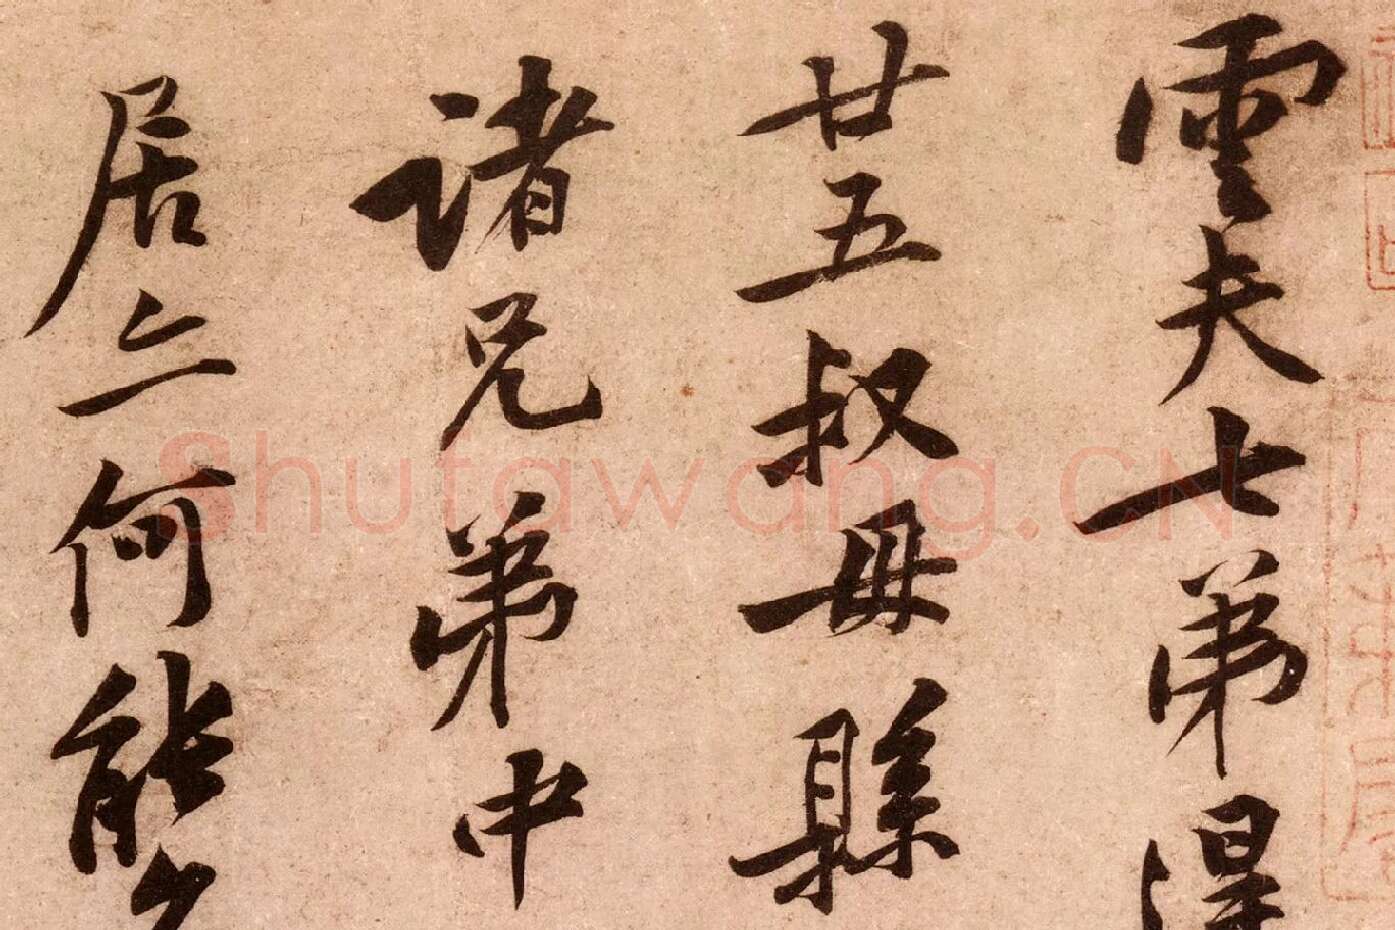 雲夫七弟得
廿五叔母縣
諸兄弟中
居亦何能
Shufawang.CN